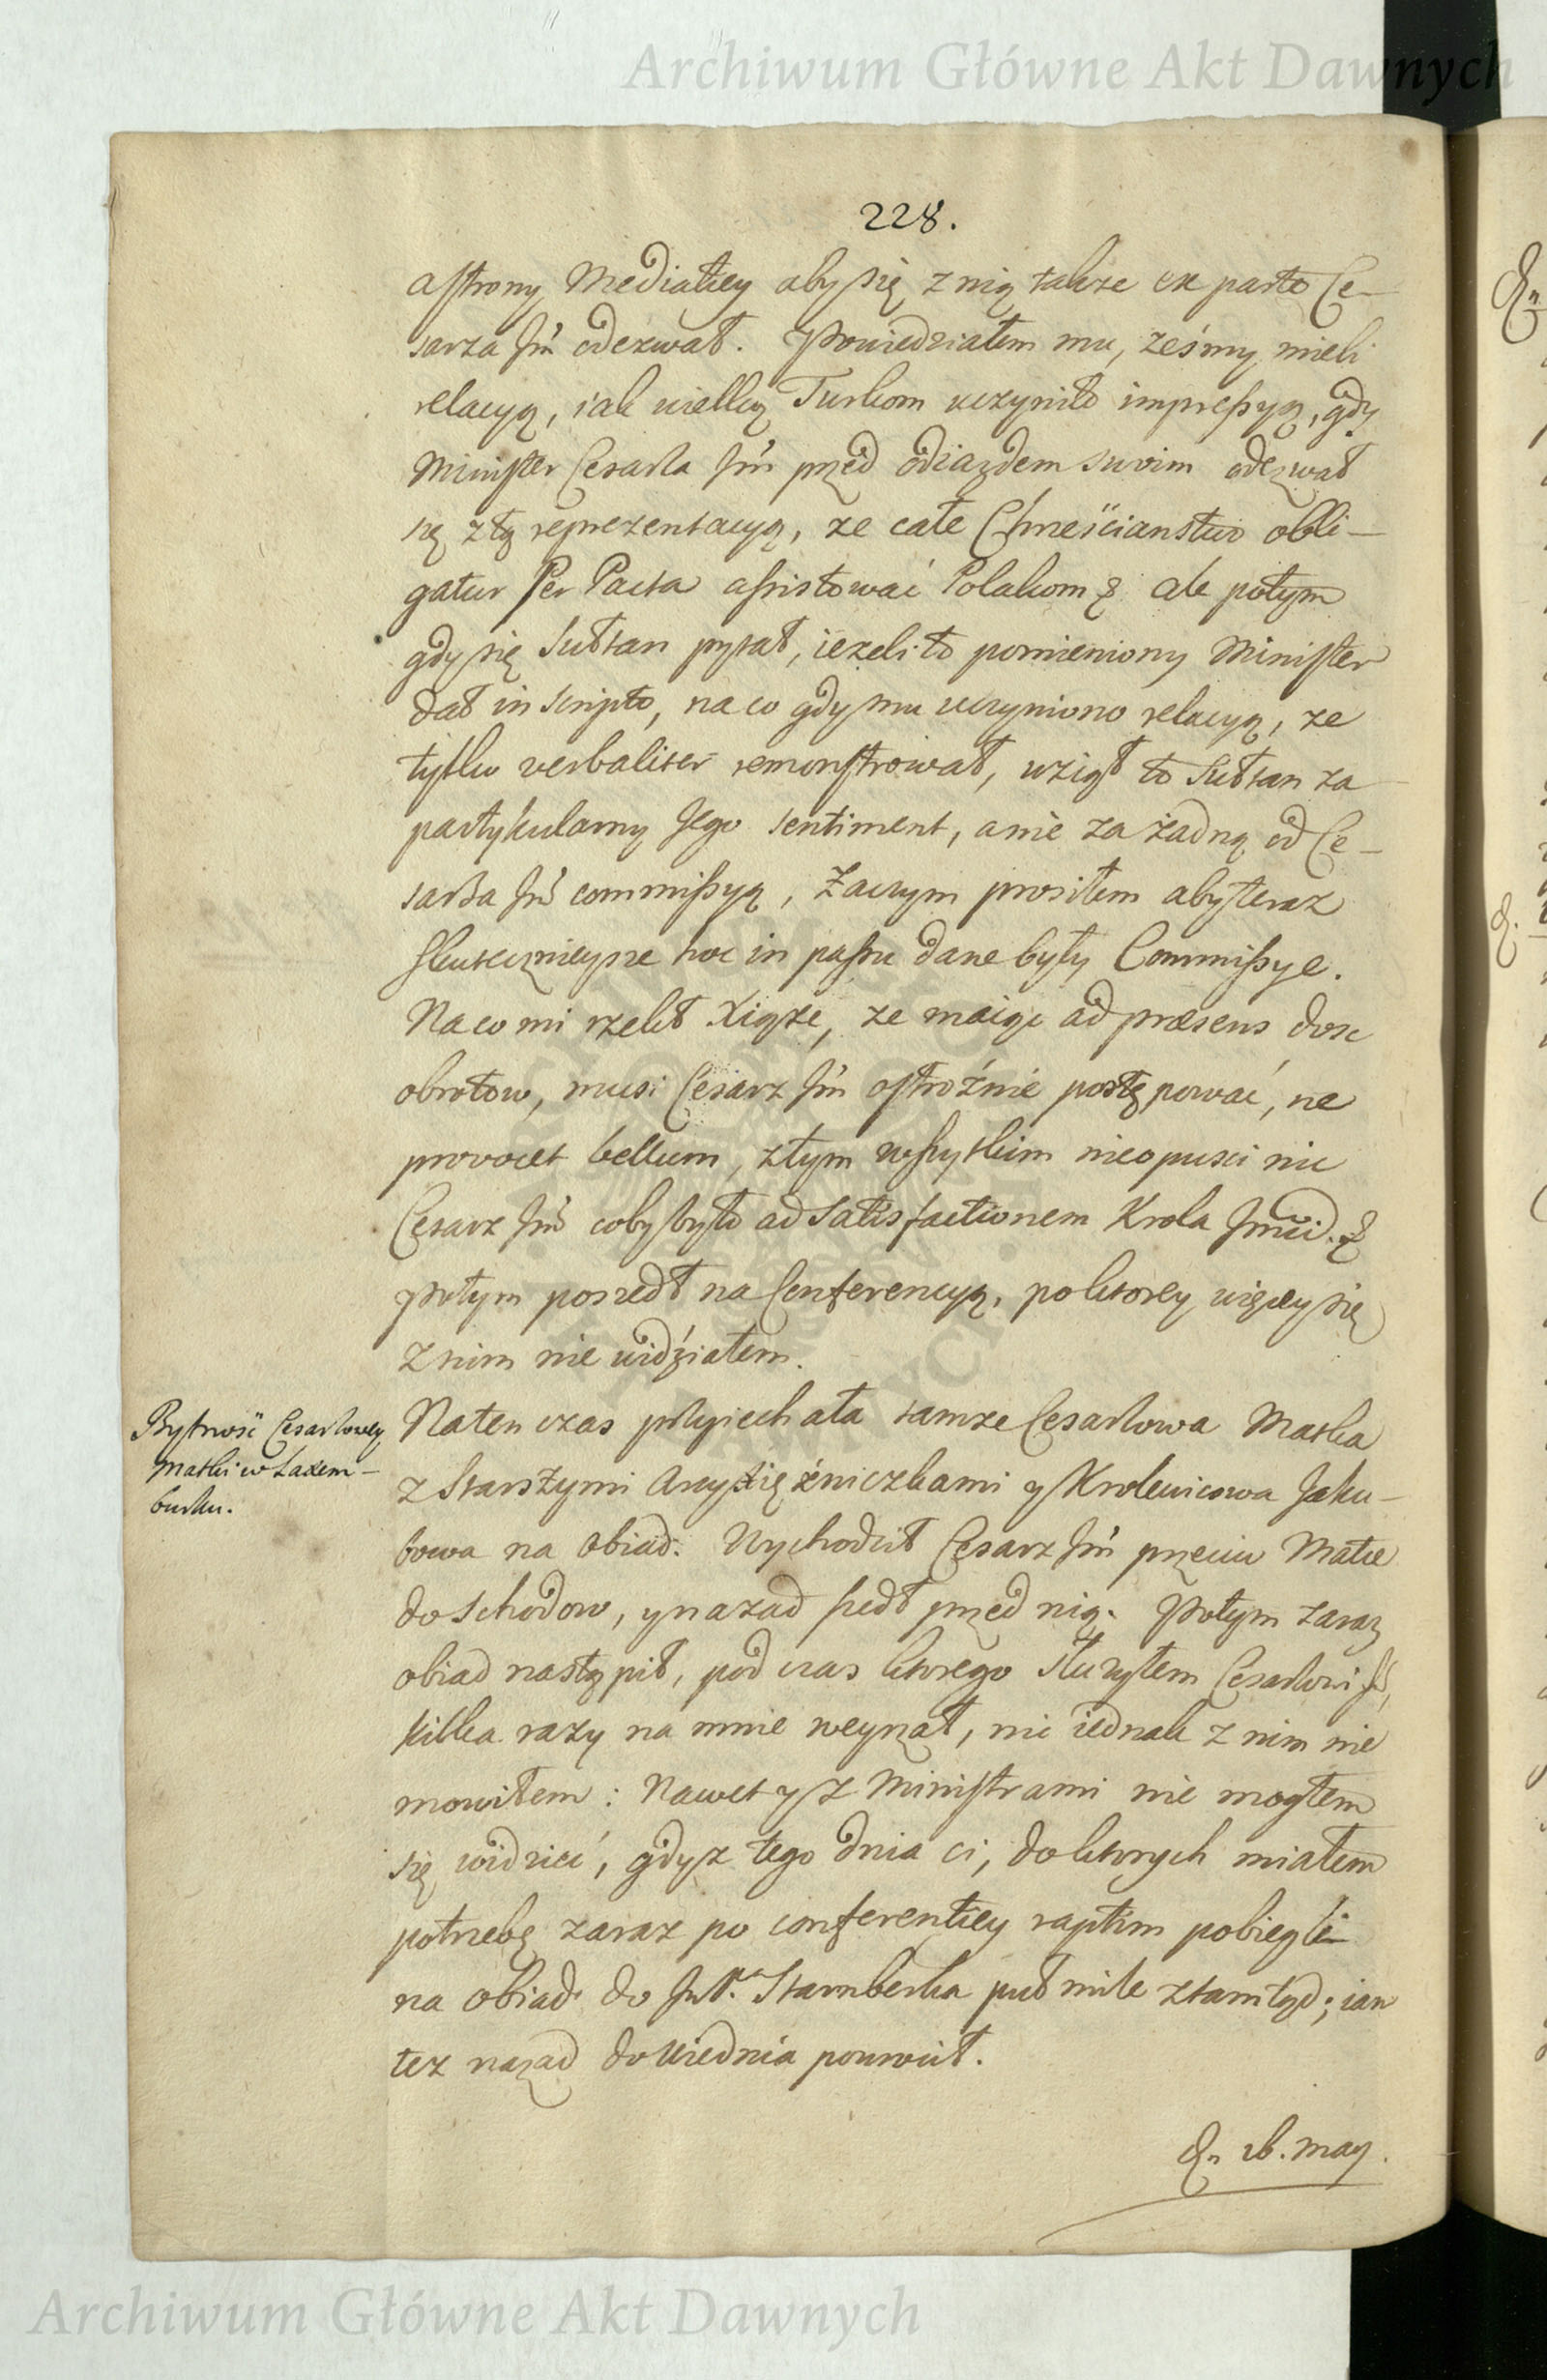 Archiwum Główne Akt Dawnych
228.
astrony Mediatiey aby się z nią także ex parte Ce-
sarza Jm odezwał. Powiedziałem mu, ześmy mieli
relacyą, iak wielką Turkom uczyniło impressyą, gdy
Minister Cesarza Jm przed odiazdem swoim odezwał
się z tą reprezentacyą, ze całe Chrześcianstwo obli-
gatur Per Pacta assistować Polakom & ale potym
gdy się Sułtan pytał, iezeli to pomieniony Minister
dał in scripto, na co gdy mu uczyniono relacyą, ze
tylko verbaliter remonstrował, wziął to Sułtan za
partykularny Jego sentiment, a nie za żadną od Ce-
sarza Jm commissyą, Zaczym prosiłem aby teraz
skutecznieysze hoc in passu dane były Commissye.
Na co mi rzekł Xiąże, ze maiąc ad præsens dosc
obrotow, musi Cesarz Jm ostrożnie postępować, ne
provocet bellum, z tym wszytkim nieopusci nic
Cesarz Jm coby było ad satisfactionem Krola Jmci. &
Potym poszedł na Conferencyą, po ktorey więcey się
z nim nie widziałem.
Bytność Cesarzowey
Matki w Laxem-
burku.
Naten czas przyiechała tamze Cesarzowa Matka
z Starszymi Arcyxiężniczkami y Krolewicowa Jaku-
bowa na obiad. Wychodził Cesarz Jm przeciw Matce
do Schodow, y nazad szedł przed nią. Potym zaraz
obiad nastąpił, pod czas ktorego służyłem Cesarzowi Jm,
kilka razy na mnie weyrzał, nic iednak z nim nie
mowiłem: Nawet y z Ministrami nie mogłem
się widzieć, gdyz tego dnia ci, do ktorych miałem
potrzebę zaraz po conferentiey raptim pobiegli
na obiad do JmP.a Starnberka puł mile ztamtąd; iam
tez nazad do Wiednia powrócił.
Dn 26. may.
Archiwum Główne Akt Dawnych